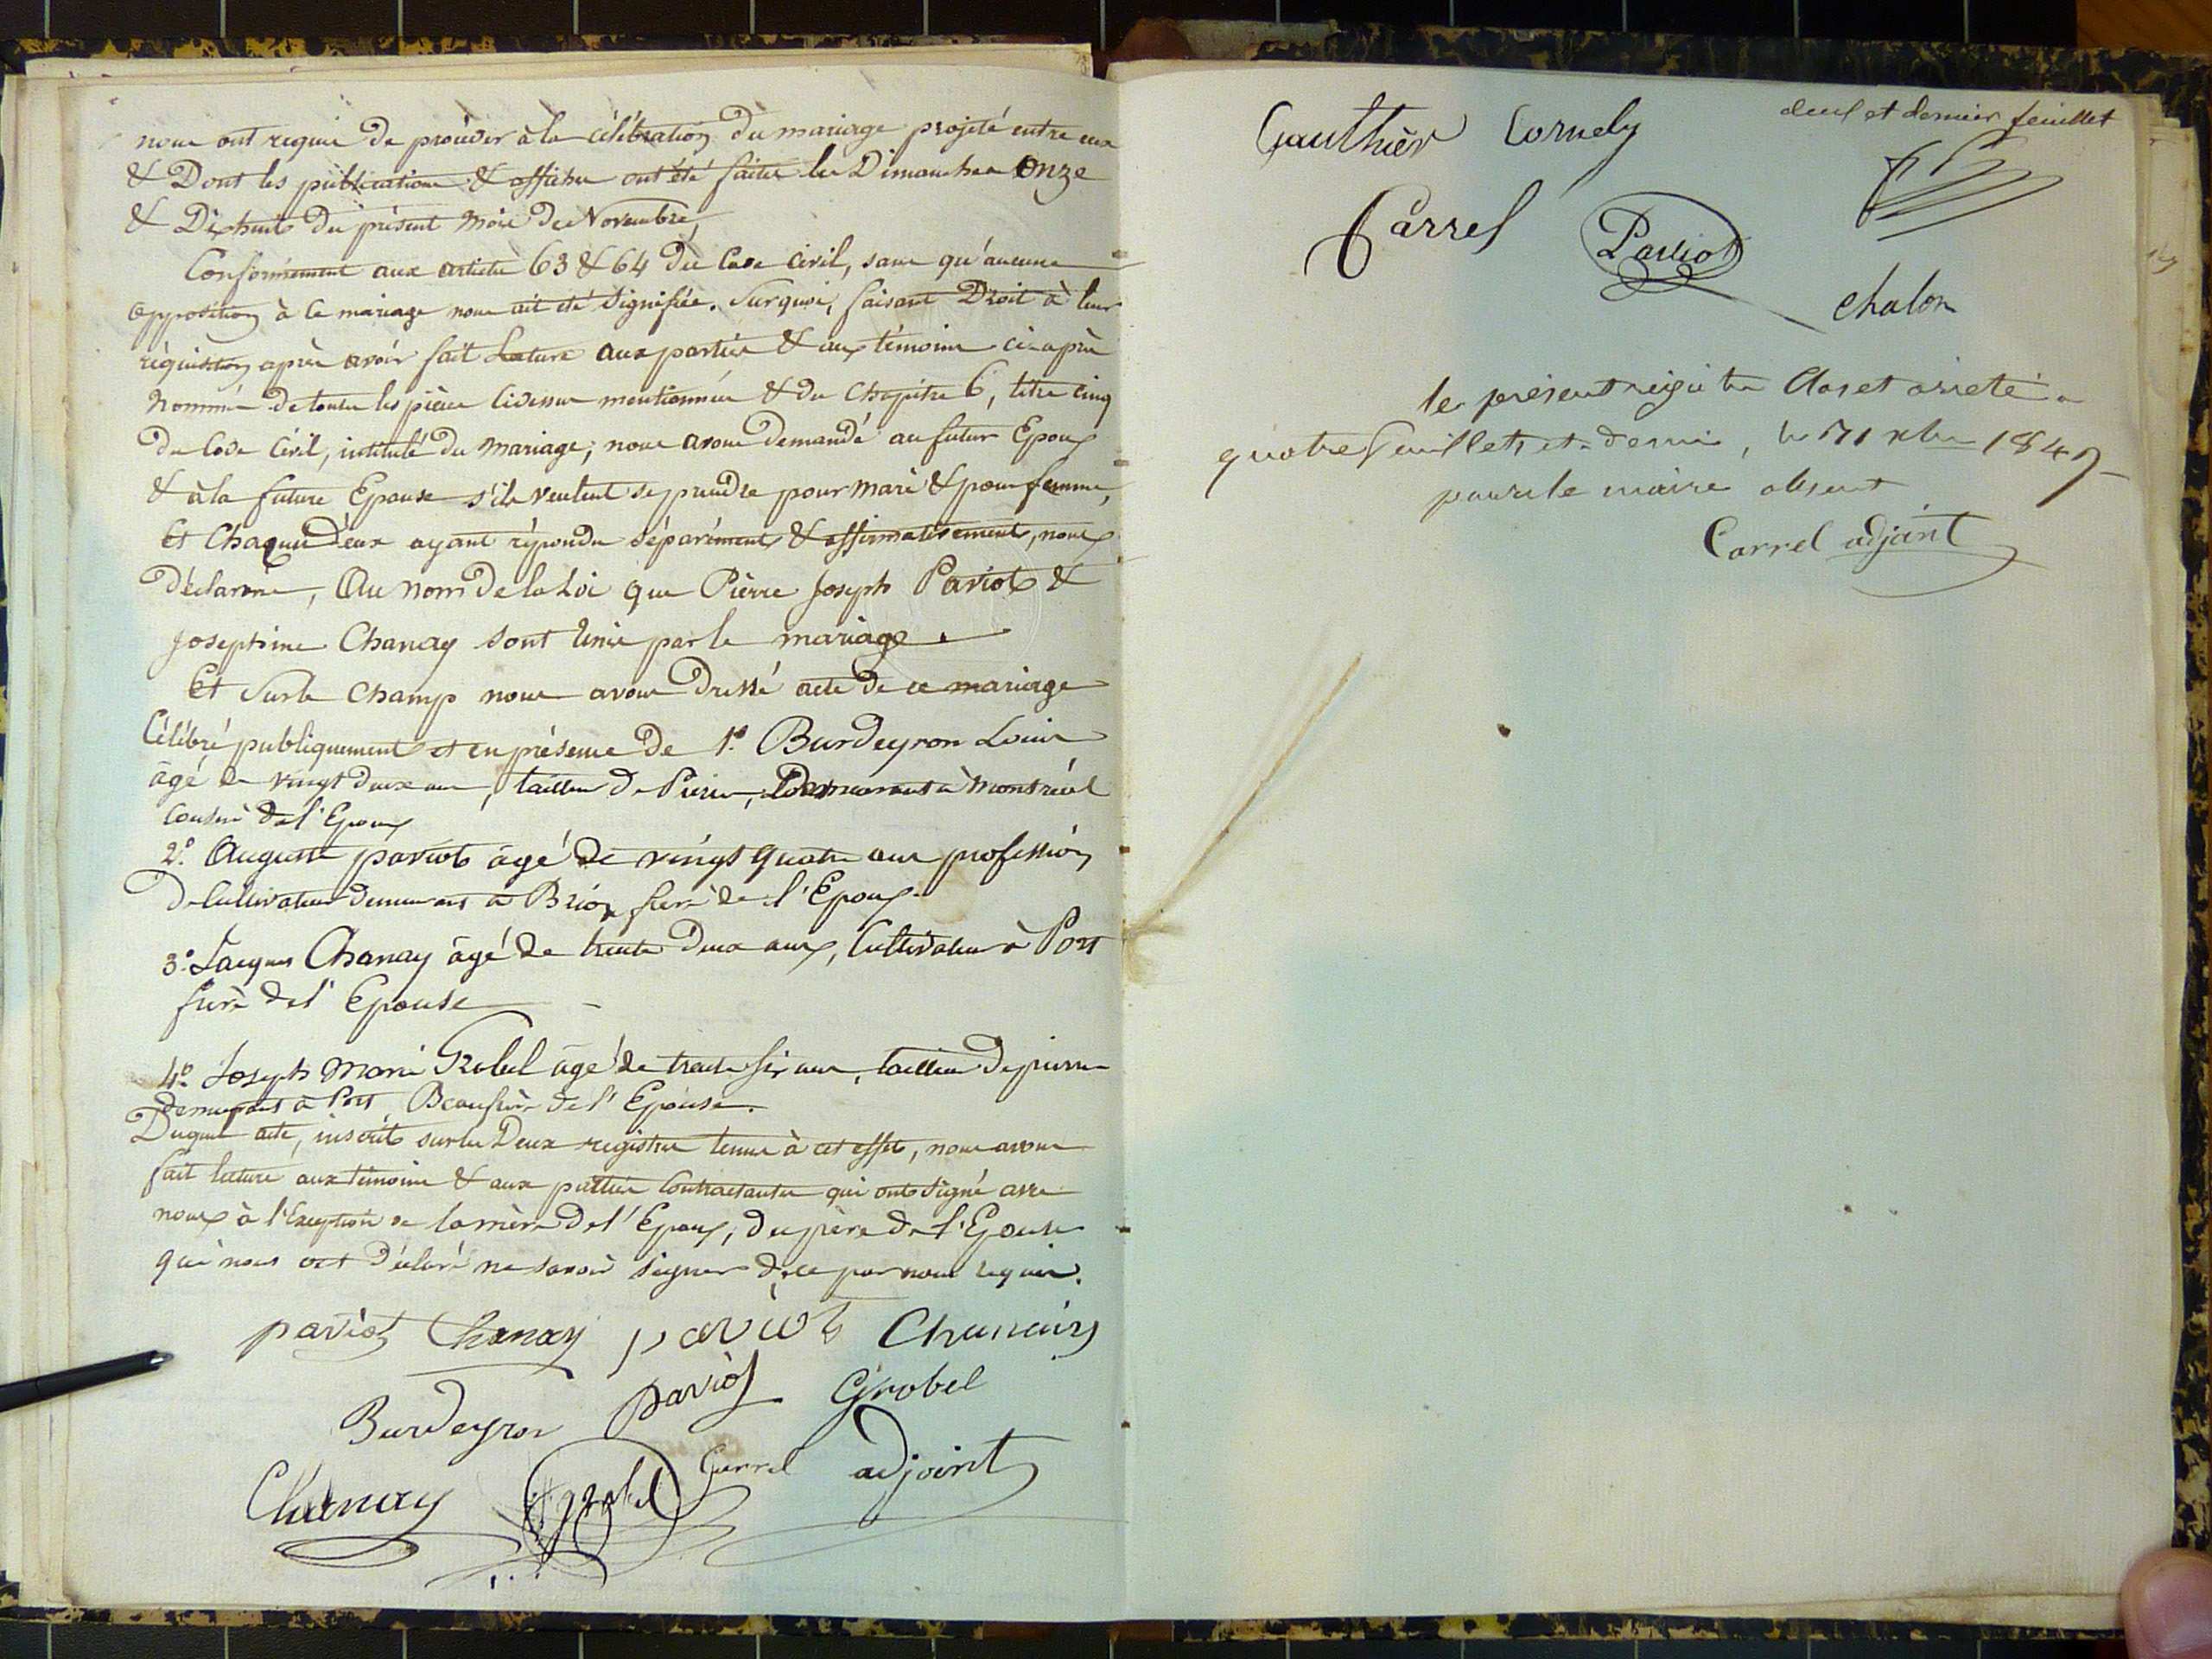 nous ont requis de procéder à la célébration du mariage projeté entre eux
& Dont les publications & affiches ont été faites les Dimanches Onze
& Dixhuit du présent mois de Novembre,
Conformément aux articles 63 & 64 du Code civil, sans qu'aucune
opposition à ce mariage nous ait été signifiée. Surquoi, faisant Droit à leur
réquisition, après avoir fait Lecture aux parties & aux témoins ci-après
nommés de toutes les pièces cidessus mentionnées & du Chapitre 6, titre cinq
du Code Civil, intitulé du Mariage; nous avons demandé au futur Epoux
& à la future Epouse s'ils veulent se prendre pour mari & pour femme,
Et Chaqun d'eux ayant répondu séparément & affirmativement, nous
déclarons, Au nom de la Loi que Pierre Joseph Paviot &
Josephine Chanay sont unis par le mariage.
Et Surle Champ nous avons Dressé acte de ce mariage
Célébré publiquement et en présence de 1.o Burdeyron Louis
âgé de vingt deux ans, tailleur de Pierre, Demeurant à Montréal
cousin de l'Epoux
2.o Auguste paviot âgé de vingt quatre ans profession
de Cultivateur demeurant à Brion frère de l'Epoux
3.o Jacques Chanay âgé de trente deux ans, Cultivateur à Port
frère de l'Epouse
4.o Joseph Marie Grobel âgé de trente six ans, tailleur de pierre
demeurant à Port Beaufrère de l'Epouse.
Duquel acte, inscrit sur les Deux registres tenus à cet effet, nous avons
fait lecture aux témoins & aux parties Contractantes qui ont signé avec
nous à l'Exception de la mère de l'Epoux, du père de l'Epouse
qui nous ont déclaré ne savoir signer de ce par nous requis.
paviot Chanay paviot Chanain
Burdeyron paviot Grobel
Chanay grobel Carrel adjoint
Gauthier Cornely
deux et dernier feuillet
Carrel Paviot
Chalon
le présent registre Clos et arreté a
quatre feuillets et demi, le 31 xbre 184
pour le maire absent
Carrel adjoint